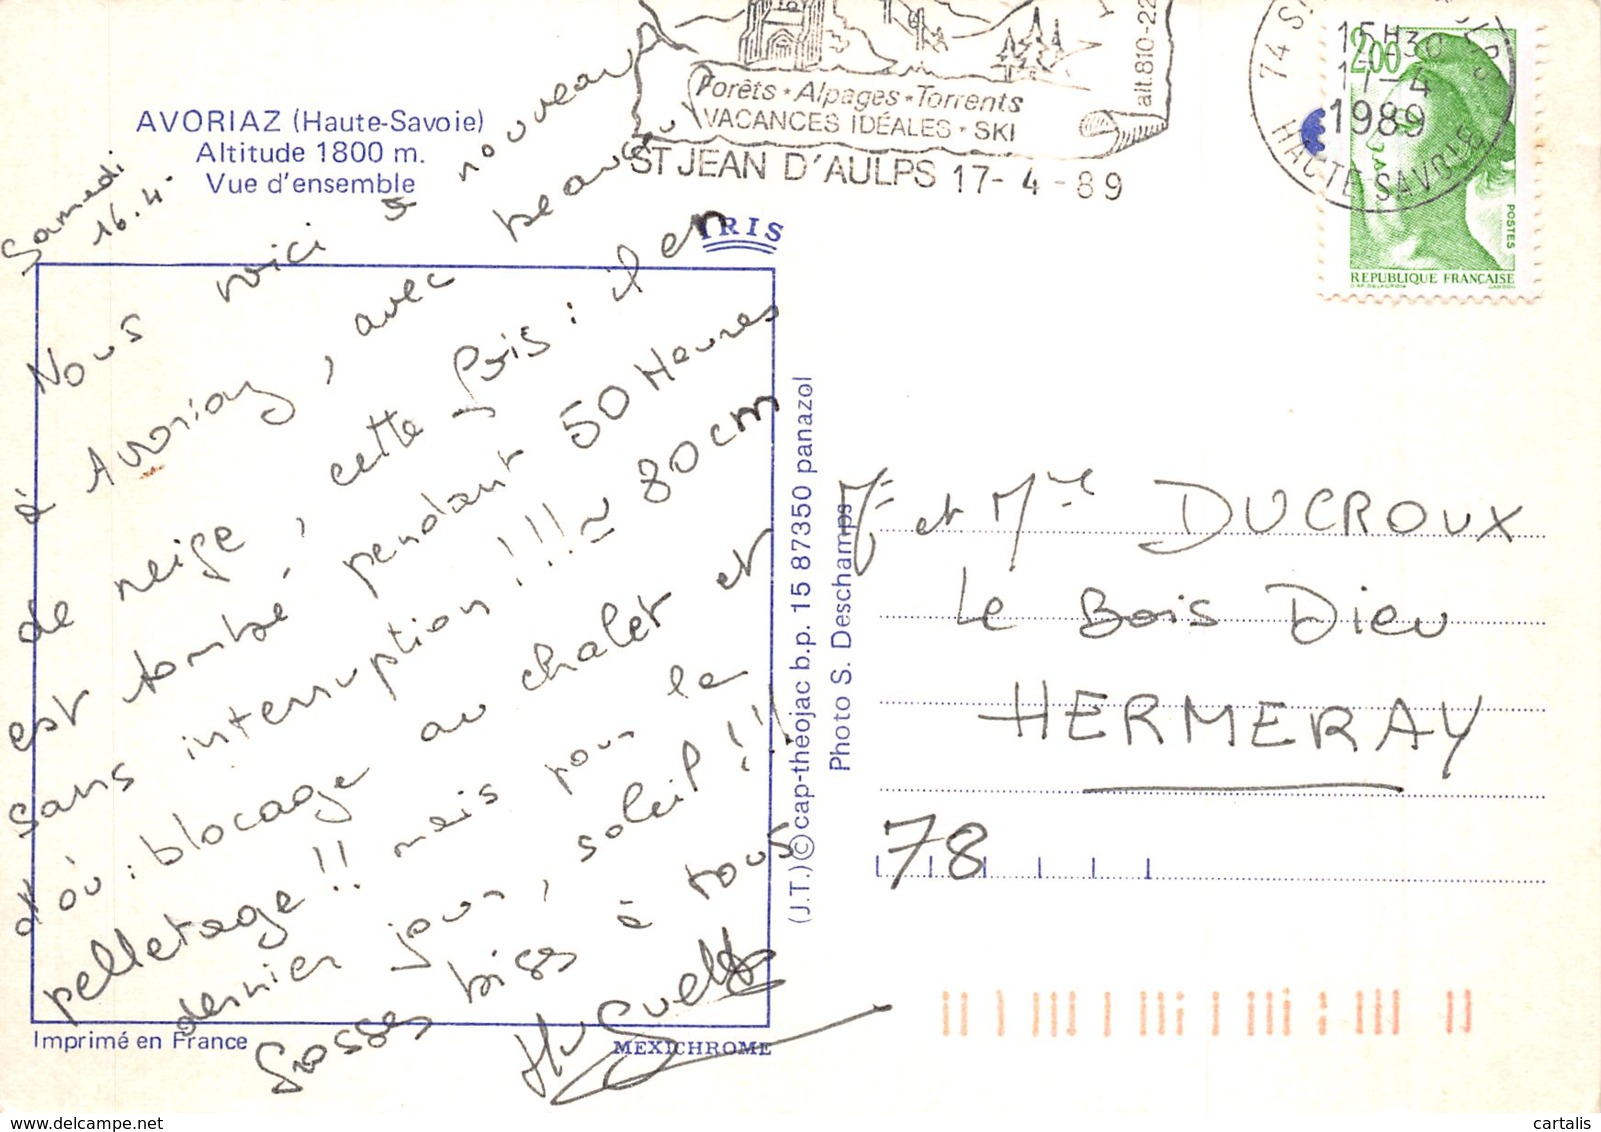 AVORIAZ (Haute-Savoie)
Altitude 1800 m.
Vue d'ensemble
Samedi
16.4.
Nous voici à nouveau
à Avoriaz, avec beaucoup
de neige, cette fois : il en
est tombé, pendant 50 Heures
sans interruption !!! ≃ 80cm
d'où : blocage au chalet et
pelletage !! mais pour le
dernier jour, soleil !!!
Grosses bises à tous
Imprimé en France
MEXICHROME
IRIS
(J.T.) © cap-théojac b.p. 15 87350 panazol
Photo S. Deschamps
Forêts • Alpages • Torrents
VACANCES IDÉALES • SKI
alt.810-22
ST JEAN D'AULPS 17-4-89
74 S
15H30
17-4
1989
HAUTE SAVOIE
2,00
POSTES
REPUBLIQUE FRANÇAISE
Mr et Mme DUCROUX
Le Bois Dieu
HERMERAY
78
delcampe.net
cartalis